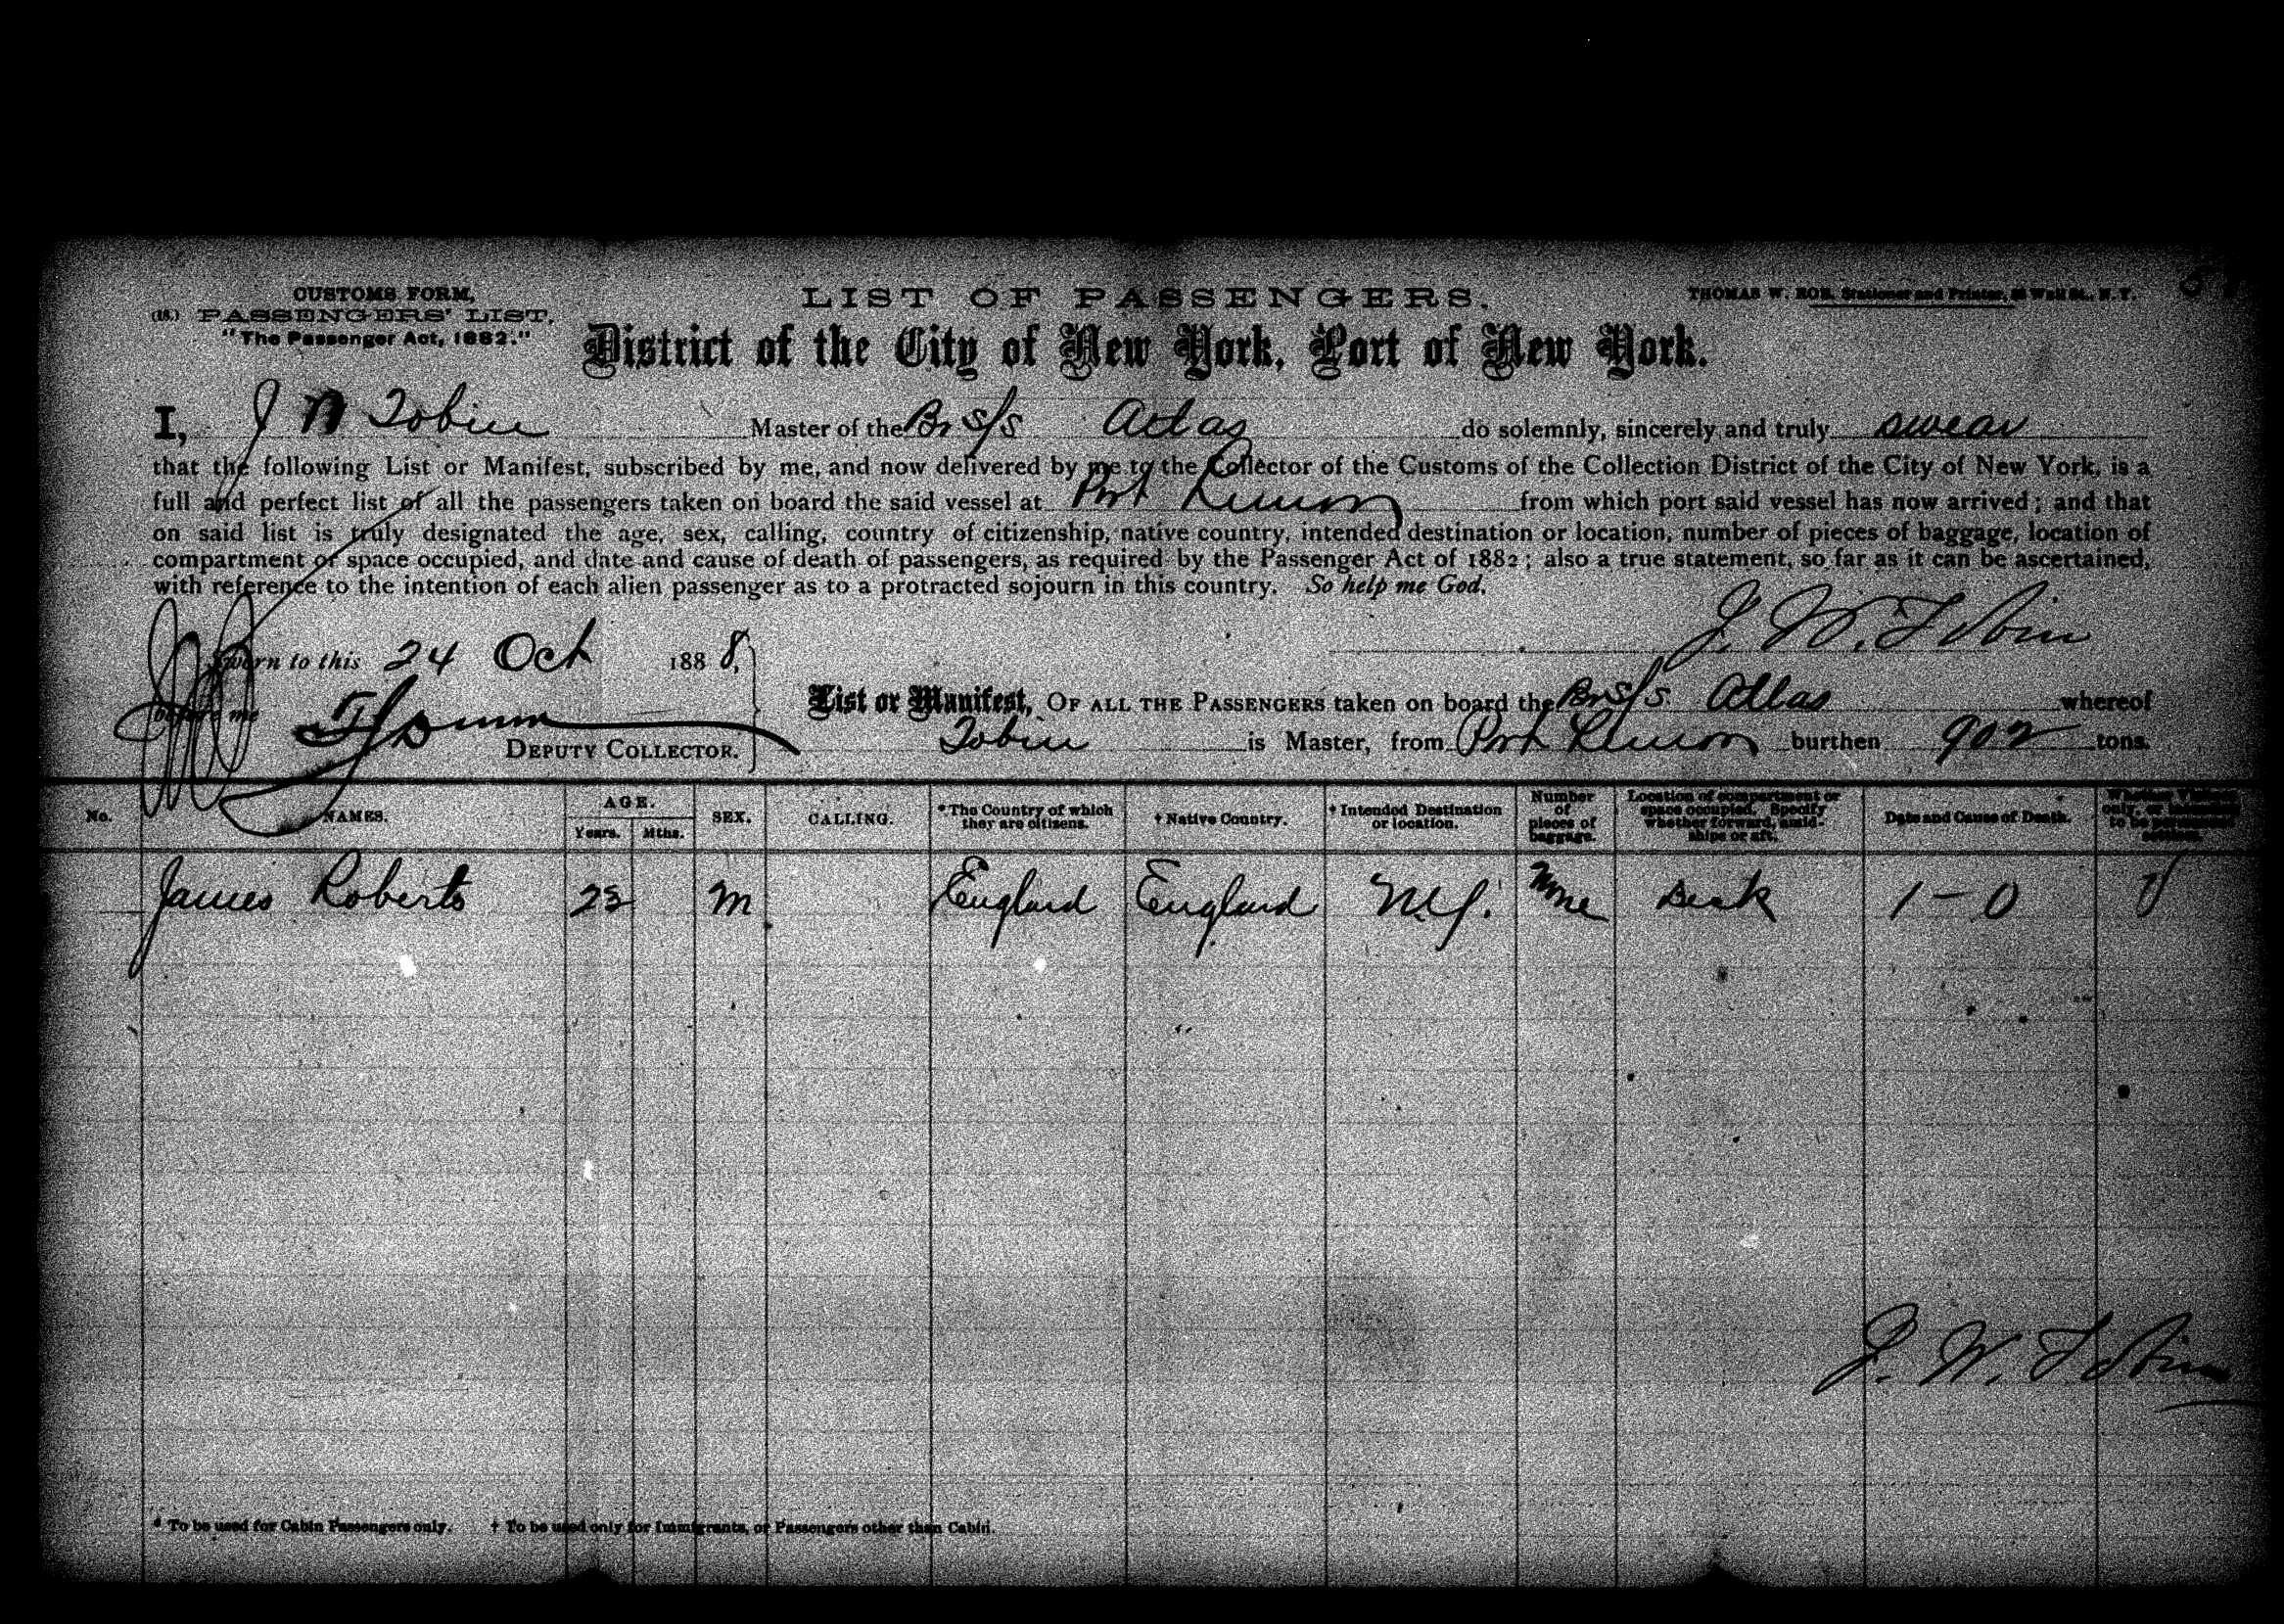 CUSTOMS FORM,
(18.) PASSENGERS' LIST,
"The Passenger Act, 1882."
LIST OF PASSENGERS.
THOMAS W. ROE, Stationer and Printer, Wall St., N. Y.
District of the City of New York, Port of New York.
I, J W Tobin Master of the Br s/s Atlas do solemnly, sincerely and truly swear
that the following List or Manifest, subscribed by me, and now delivered by me to the Collector of the Customs of the Collection District of the City of New York, is a
full and perfect list of all the passengers taken on board the said vessel at Port Limon from which port said vessel has now arrived; and that
on said list is truly designated the age, sex, calling, country of citizenship, native country, intended destination or location, number of pieces of baggage, location of
compartment or space occupied, and date and cause of death of passengers, as required by the Passenger Act of 1882; also a true statement, so far as it can be ascertained,
with reference to the intention of each alien passenger as to a protracted sojourn in this country. So help me God.
J. W. Tobin
Sworn to this 24 Oct 1888,
before me
DEPUTY COLLECTOR.
List or Manifest, OF ALL THE PASSENGERS taken on board the Br s/s. Atlas whereof
Tobin is Master, from Port Limon burthen 902 tons.
No. NAMES. AGE. Years. Mths. SEX. CALLING. * The Country of which they are citizens. † Native Country. † Intended Destination or location. Number of pieces of baggage. Location of compartment or space occupied. Specify whether forward, amidships or aft. Date and Cause of Death.
James Roberts 23 M England England N.Y. None Deck 1 - 0
J. W. Tobin
* To be used for Cabin Passengers only. † To be used only for Immigrants, or Passengers other than Cabin.